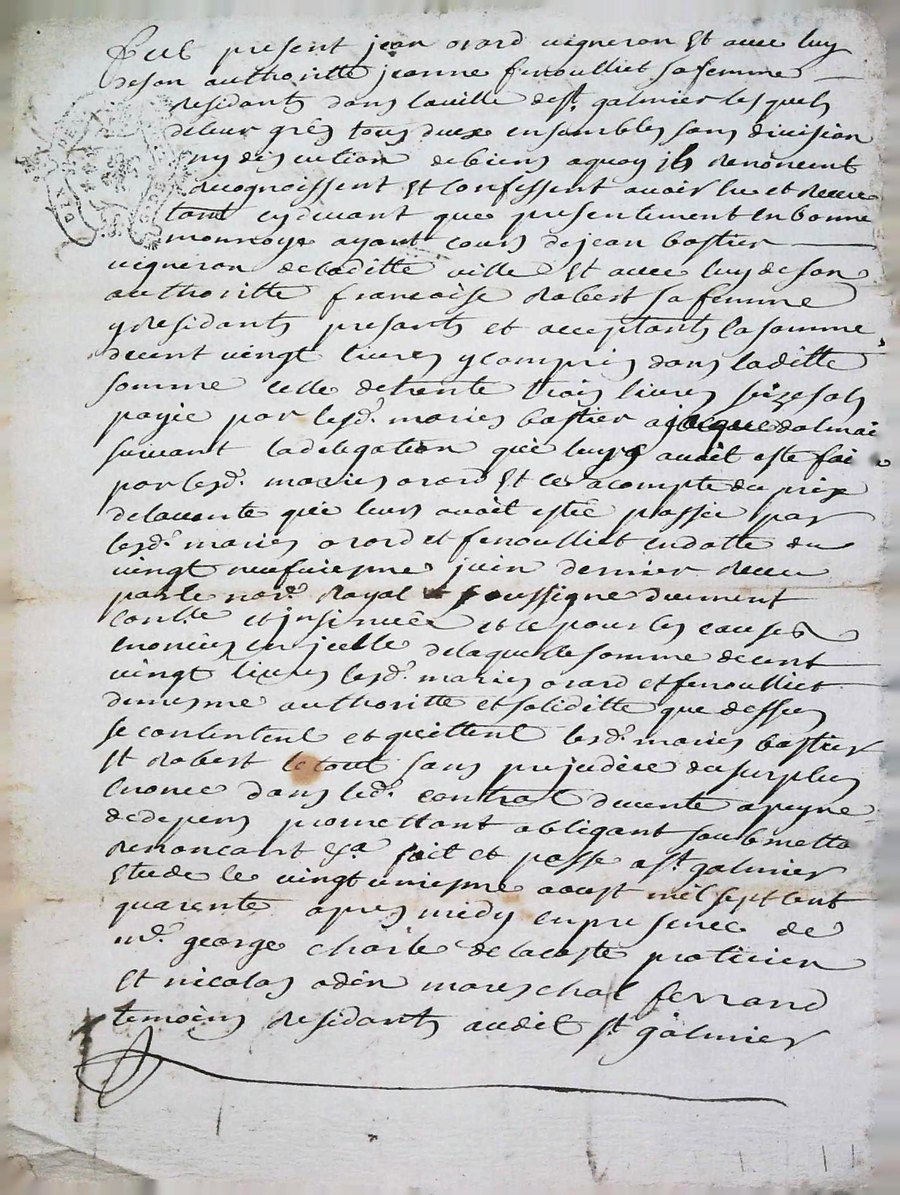 fut present jean orard vigneron Et avec luy
de son authoritte jeanne fenoulliet sa femme
residants dans la ville de st. galmier lesquels
de leur grés tous deux ensembles sans division
ny discution de biens a quoy ils renoncent
recognoissent Et confessent avoir eu et receu
tant cy devant que presentement en bonne
monnoye ayant cours de jean bastier
vigneron de laditte ville Et avec luy de son
authoritte francoise Robert sa femme
y residants presants et acceptants la somme
de cent vingt livres y compris dans laditte
somme celle de trente trois livres seize sols
payée par lesd. maries bastier a jacque dalmai
suivant la delegation qui luy avoit esté fai
par lesd. maries orard Et ce a compte du prix
de la vente qui leurs avoit estée passée par
lesd. maries orard et fenoulliet en datte du
vingt neufuiesme juin dernier receu
par le nore. Royal soussigne duement
conlle. et insinuée et ce pour les causes
enoncées en icelle de laquelle somme de cent
vingt livres lesd. maries orard et fenoulliet
de mesme authoritte et soliditte que dessus
se contentent et quittent lesd. maries bastier
Et Robert le tout sans prejudice du surplus
enoncé dans led. contrat de vente a peyne
de depens promettant obligant soubmetta
renoncant &a. fait et passe a st. galmier
Etude le vingt uniesme aoust mil sept cent
quarente apres midy en presence de
me. george charle de lacoste praticien
Et nicolas odin mareschal ferrand
temoins residants audit st. galmier